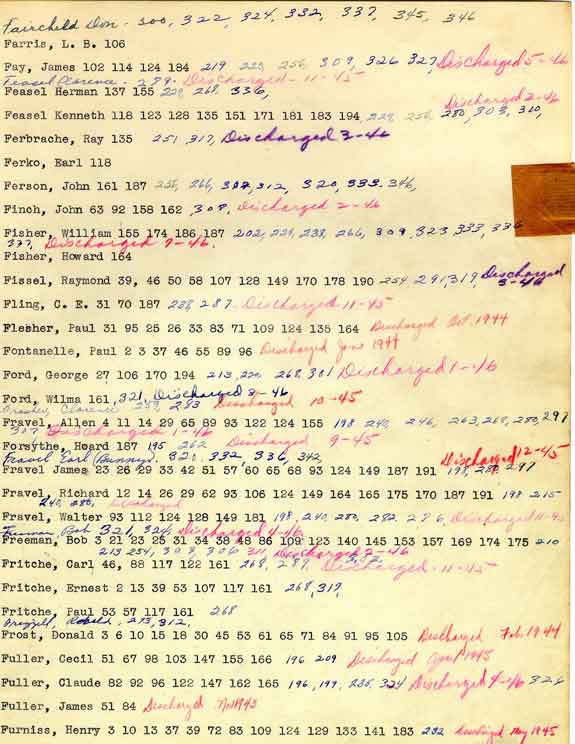 Fairchild Don - 300, 322, 324, 332, 337, 345, 346
Farris, L. B. 106
Fay, James 102 114 124 184 219 229 256 309, 326 327, Discharged 5-46
Feasel Clarence - 289 - Discharged - 11-45
Feasel Herman 137 155 229, 268, 336,
Discharged 2-46
Feasel Kenneth 118 123 128 135 151 171 181 183 194, 229, 256, 280, 303, 310,
Ferbrache, Ray 135 251, 317, Discharged 3-46
Ferko, Earl 118
Ferson, John 161 187 256, 266, 312, 320, 333, 346,
Finch, John 63 92 158 162, 308, Discharged 2-46
Fisher, William 155 174 186 187 202, 229, 238, 266, 309, 323, 333, 336
337, Discharged 9-46.
Fisher, Howard 164
Fissel, Raymond 39, 46 50 58 107 128 149 170 178 190 254, 291, 319, Discharged
3-46
Fling, C. E. 31 70 187 238, 287 - Discharged 11-45
Flesher, Paul 31 95 25 26 33 83 71 109 124 135 164 Discharged Oct. 1944
Fontanelle, Paul 2 3 37 46 55 89 96 Discharged June 1944
Ford, George 27 106 170 194 213, 220, 268, 301 Discharged 1-46
Ford, Wilma 161, 321, Discharged 3-46
Clarence 259, 283 Discharged 10-45
Fravel, Allen 4 11 14 29 65 89 93 122 124 155 198 240, 246, 263, 268, 280, 297
307, Discharged 1-46
Forsythe, Hoard 187 195 262 Discharged 9-45
Fravel Earl (Bunny). 320, 332, 336, 342,
Discharged 12-45
Fravel James 23 26 29 33 42 51 57 60 65 68 93 124 149 187 191 198, 280, 297
Fravel, Richard 12 14 26 29 62 93 106 124 149 164 165 175 170 187 191 198 215
240, 280, Discharged
Fravel, Walter 93 112 124 128 149 181 198, 240, 280, 282, 286, Discharged 11-45
Freeman, Bob 321, 324, Discharged 4-46
Freeman, Bob 3 21 23 25 31 34 38 48 86 109 123 140 145 153 157 169 174 175 210
213 254, 308, 306 311, Discharged 2-46
Fritche, Carl 46, 88 117 122 161 268, 287, Discharged - 11-45
Fritche, Ernest 2 13 39 53 107 117 161 268, 317,
Fritche, Paul 53 57 117 161 268
293, 312.
Frost, Donald 3 6 10 15 18 30 45 53 61 65 71 84 91 95 105 Discharged Feb. 1944
Fuller, Cecil 51 67 98 103 147 155 166 196 209 Discharged April 1945
Fuller, Claude 82 92 96 122 147 162 165 196, 199, 235, 324 Discharged 4-46 326
Fuller, James 51 84 Discharged Nov 1943
Furniss, Henry 3 10 13 37 39 72 83 109 124 129 133 141 183 232 Discharged May 1945